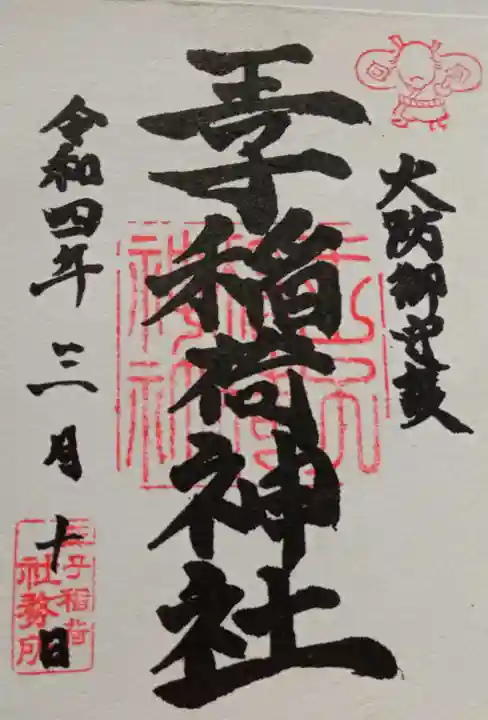 火防御守護
王子稲荷神社
令和四年三月十日
王子稲荷
社務所